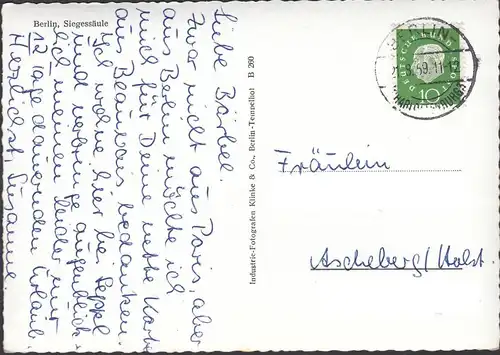 Berlin, Siegessäule
Liebe Bärbel.
Zwar nicht aus Paris, aber
aus Berlin möchte ich
mich für Deine nette Karte
aus Beauvais bedanken.
Ich wohne hier bei Seppl
und verbringe augenblick-
lich meinen leider nur
12 Tage dauernden Urlaub.
Herzlichst, Susanne.
Industrie-Fotografen Klinke & Co., Berlin-Tempelhof B 260
DEUTSCHE BUNDESPOST
10
59.11
Fräulein
Ascheberg/Holst.